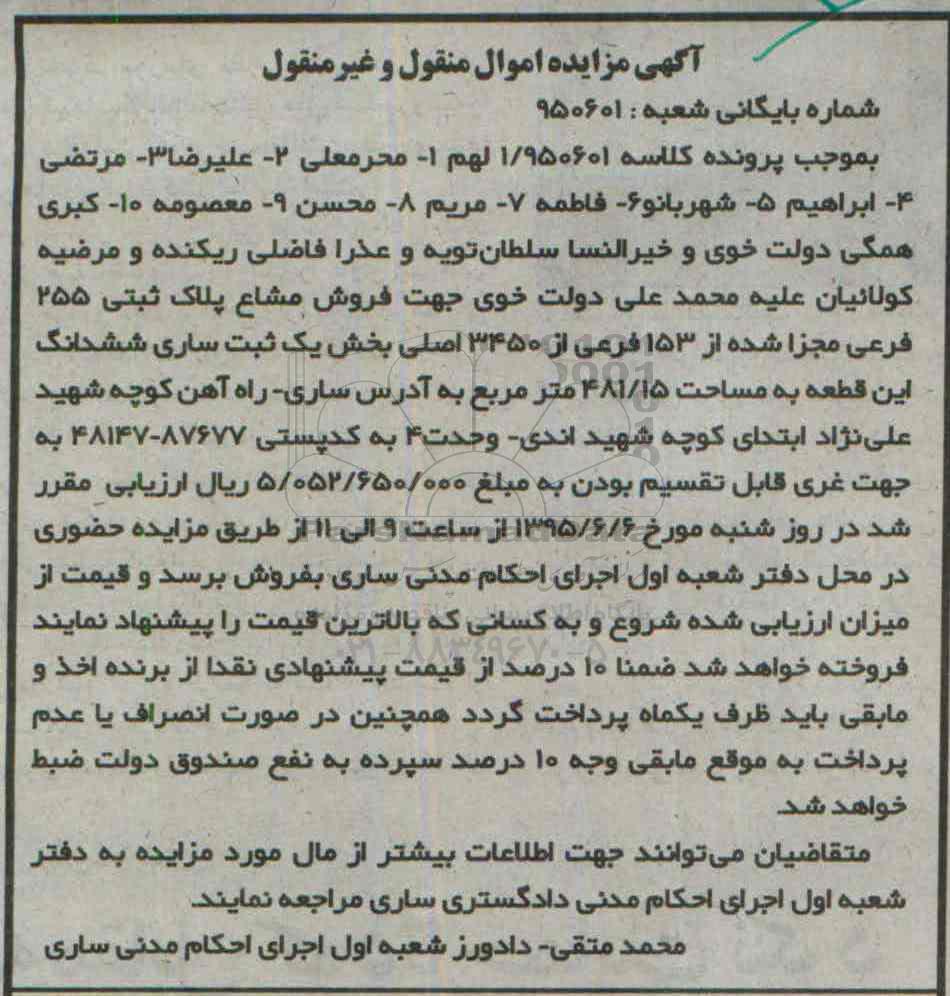 آگهی مزایده اموال منقول و غیر منقول
شماره بایگانی شعبه : ۹۵۰۶۰۱
بموجب پرونده کلاسه ۱/۹۵۰۶۰۱ لهم ۱- محرمعلی ۲- علیرضا۳- مرتضی
۴- ابراهیم ۵- شهربانو۶- فاطمه ۷- مریم ۸- محسن ۹- معصومه ۱۰- کبری
همگی دولت خوی و خیرالنسا سلطان‌تویه و عذرا فاضلی ریکنده و مرضیه
کولائیان علیه محمد علی دولت خوی جهت فروش مشاع پلاک ثبتی ۲۵۵
فرعی مجزا شده از ۱۵۳ فرعی از ۳۴۵۰ اصلی بخش یک ثبت ساری ششدانگ
این قطعه به مساحت ۴۸۱/۱۵ متر مربع به آدرس ساری- راه آهن کوچه شهید
علی‌نژاد ابتدای کوچه شهید اندی- وحدت۴ به کدپستی ۸۷۶۷۷-۴۸۱۴۷ به
جهت غری قابل تقسیم بودن به مبلغ ۵/۰۵۲/۶۵۰/۰۰۰ ریال ارزیابی مقرر
شد در روز شنبه مورخ ۱۳۹۵/۶/۶ از ساعت ۹ الی ۱۱ از طریق مزایده حضوری
در محل دفتر شعبه اول اجرای احکام مدنی ساری بفروش برسد و قیمت از
میزان ارزیابی شده شروع و به کسانی که بالاترین قیمت را پیشنهاد نمایند
فروخته خواهد شد ضمنا ۱۰ درصد از قیمت پیشنهادی نقدا از برنده اخذ و
مابقی باید ظرف یکماه پرداخت گردد همچنین در صورت انصراف یا عدم
پرداخت به موقع مابقی وجه ۱۰ درصد سپرده به نفع صندوق دولت ضبط
خواهد شد.
متقاضیان می‌توانند جهت اطلاعات بیشتر از مال مورد مزایده به دفتر
شعبه اول اجرای احکام مدنی دادگستری ساری مراجعه نمایند.
محمد متقی- دادورز شعبه اول اجرای احکام مدنی ساری